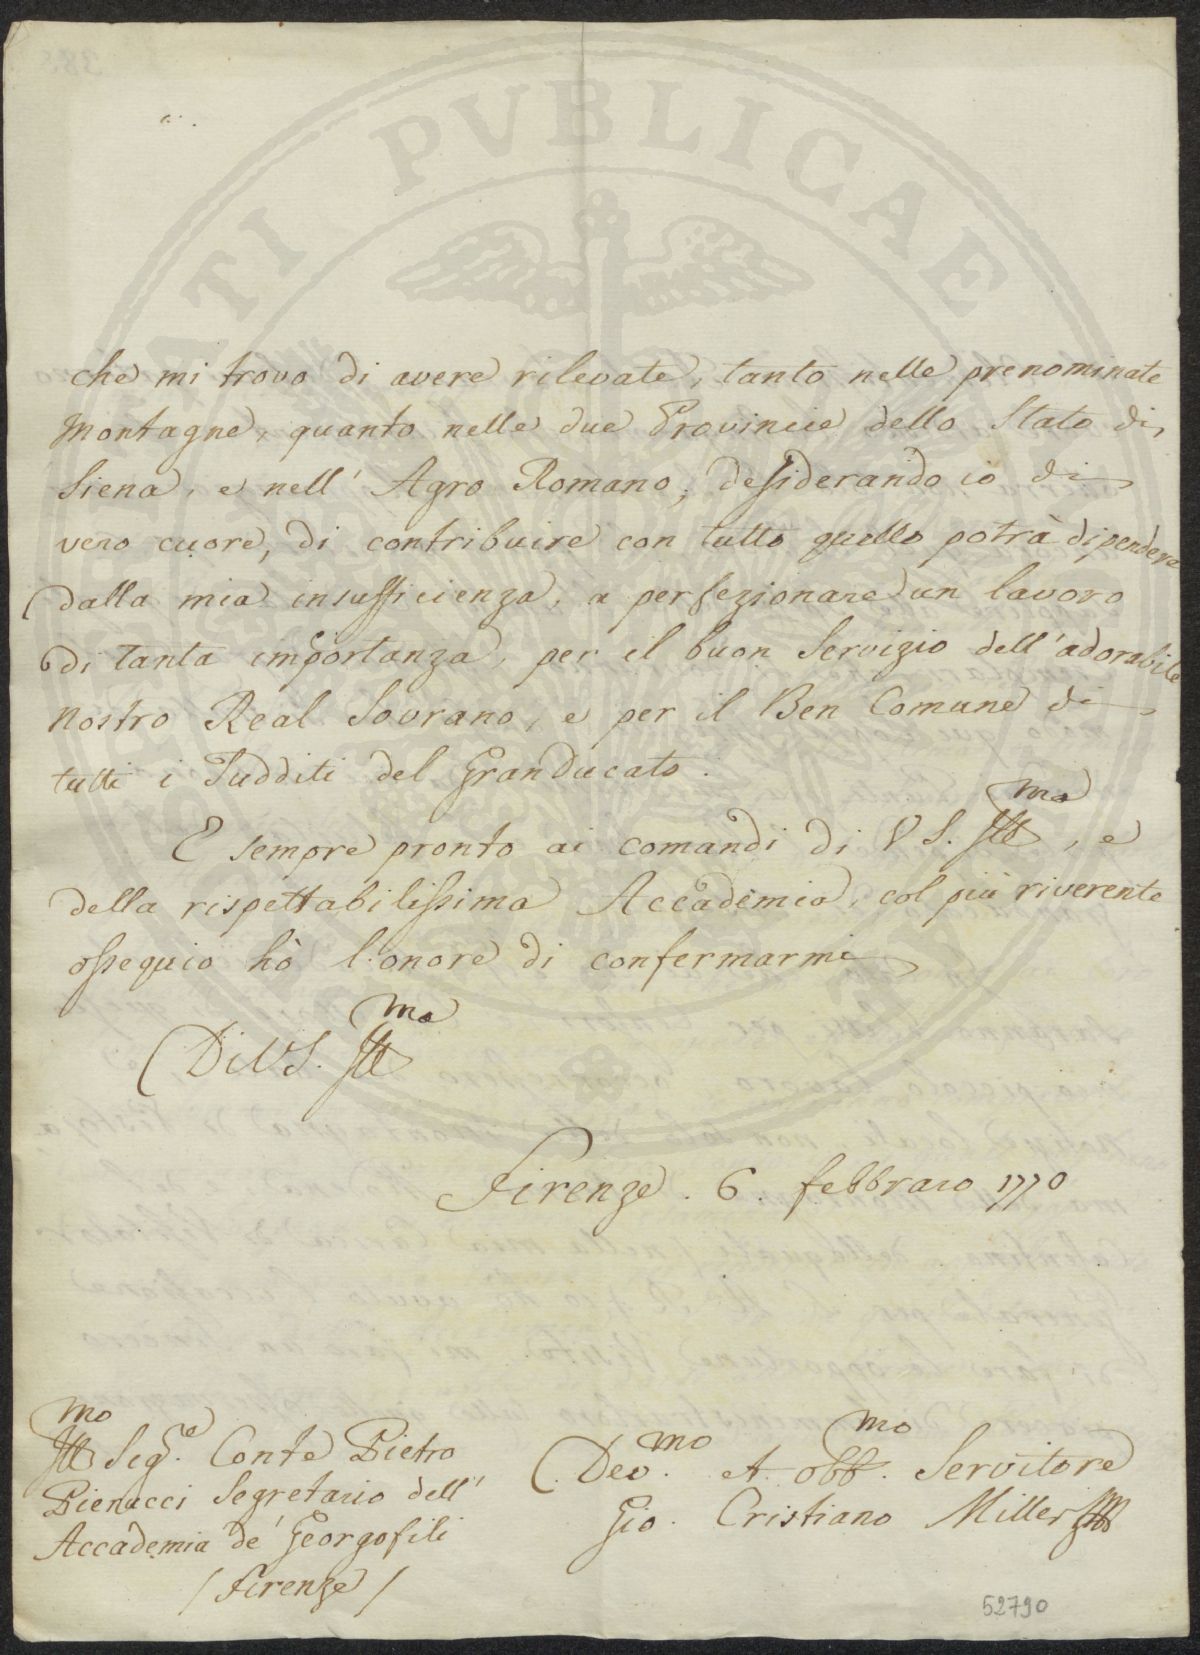 che mi trovo di avere rilevate, tanto nelle prenominate
Montagne, quanto nelle due Provincie dello Stato di
Siena, e nell' Agro Romano, desiderando io di
vero cuore, di contribuire con tutto quello potrà dipendere
dalla mia insufficienza, a perfezionare un lavoro
di tanta importanza, per il buon Servizio dell'adorabile
Nostro Real Sovrano, e per il Ben Comune di
tutti i Sudditi del GranDucato.
E sempre pronto ai comandi di VS. Ill ma, e
della rispettabilissima Accademia, col più riverente
ossequio hò l'onore di confermarmi
Di VS. Ill ma
Firenze. 6. febbraro 1770
Ill mo Sig.re Conte Pietro
Pierucci Segretario dell'
Accademia de' Georgofili
/ Firenze /
Dev. mo et obb. mo Servitore
Gio. Cristiano Miller
52790
PVBLICAE